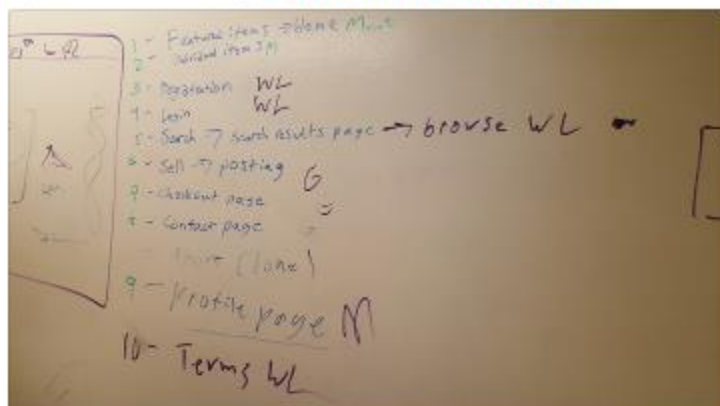 1 - Featured items → Home
2 - items M
3 - Registration WL
4 - Login WL
5 - Search → search results page → browse WL -
6 - Sell → posting G
7 - Checkout page
8 - Contact page
(done)
9 - Profile page M
10 - Terms WL